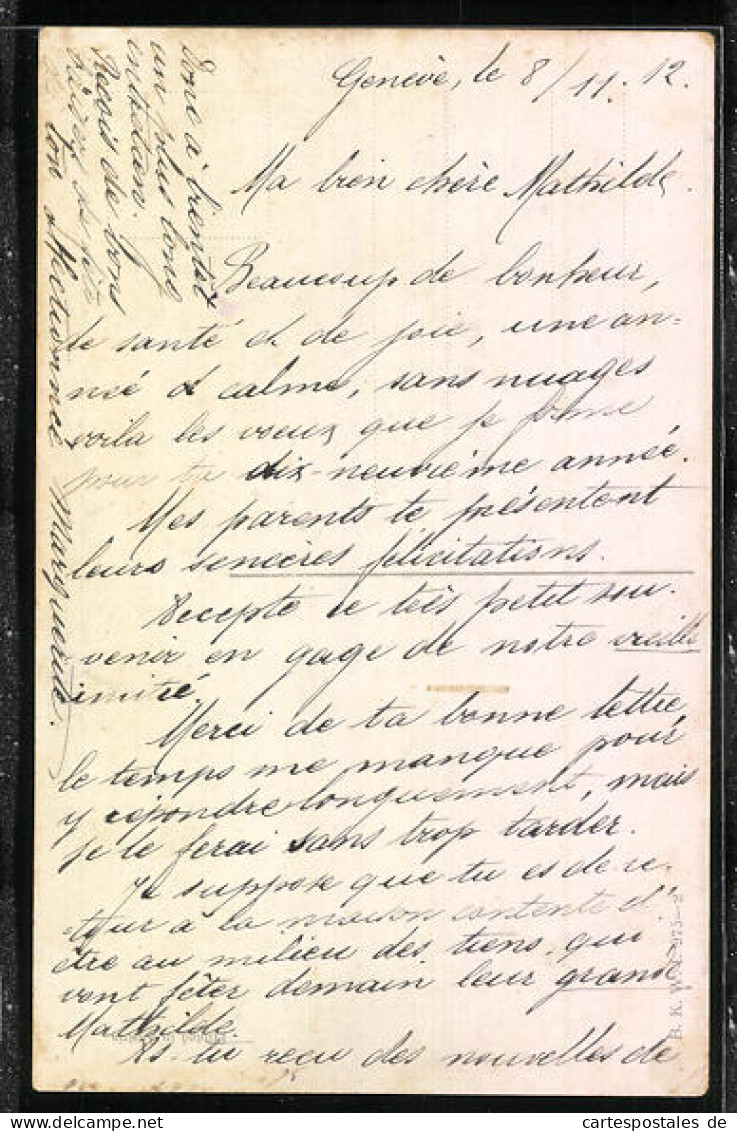 Genève, le 8/11.12.
Ma bien chère Mathilde.
Beaucoup de bonheur,
de santé et de joie, une an=
neé d calme, sans nuages
voila les voeux que je forme
pour ta dix-neuvième année.
Mes parents te présentent
leurs sencères félicitations.
Accepte ce très petit sou-
venir en gage de notre vieille
amitié.
Merci de ta bonne lettre,
le temps me manque pour
y répondre longuement, mais
je le ferai sans trop tarder.
Je suppose que tu es de re-
tour à la maison contente d'
être au milieu des tiens, qui
vont fêter demain leur grande
Mathilde.
As-tu reçu des nouvelles de
Donc à bientôt
un plus long
entretien.
Reçois de bons
baisers de
ton affectionnée Marguerite.
B. K. W. I. 975-2
cartespostales de
www.cartespostales.de